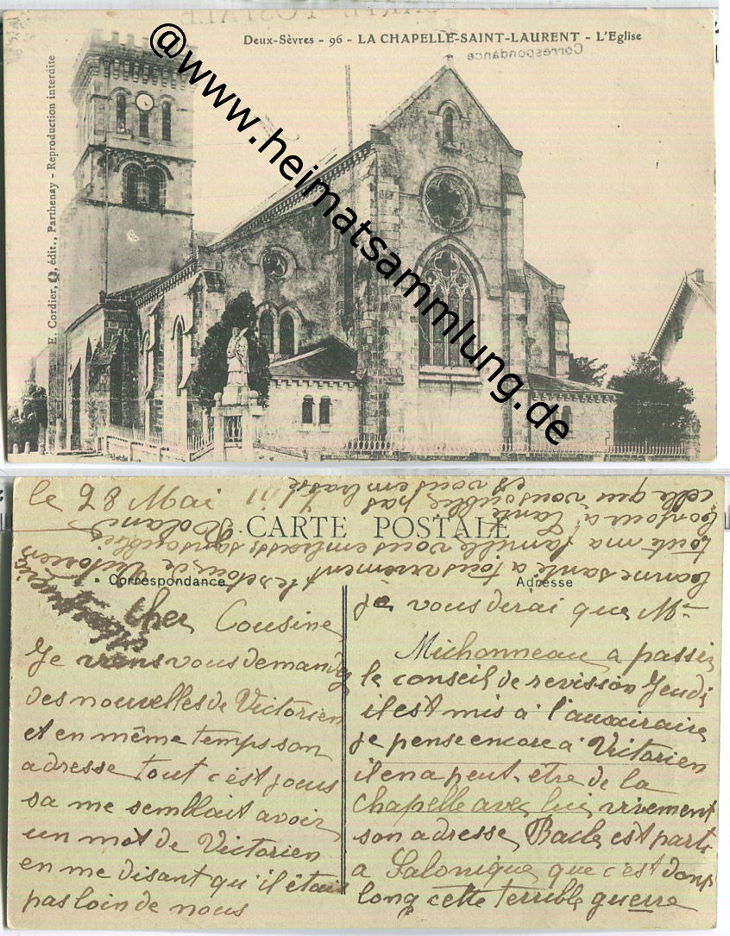 Deux-Sèvres - 96 - LA CHAPELLE-SAINT-LAURENT - L'Eglise
Correspondance
E. Cordier, édit., Parthenay - Reproduction interdite
@www.heimatsammlung.de
le 28 Mai
CARTE POSTALE
Correspondance
Adresse
cher Cousine
Je viens vous demander
des nouvelles de Victorien
et en même temps son
adresse tout c'est jours
sa me semblait avoir
un mot de Victorien
en me disant qu'il étais
pas loin de nous
je vous derai que Mr
Michonneau a passer
le conseil de revision Jeudi
il est mis à l'auxuraire
je pense encore à Victorien
il en a peut être de la
chapelle avec lui vivement
son adresse est parti
a Salonique que c'est donp
long cette terrible guerre
vivement le retour de Victorien
bonne santé a tous
toute ma famille vous embrasse
bonjour à tante
celle qui vous oublie pas
et vous embrasse